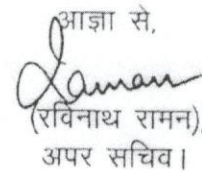 आज्ञा से,
Laman
(रविनाथ रामन)
अपर सचिव।